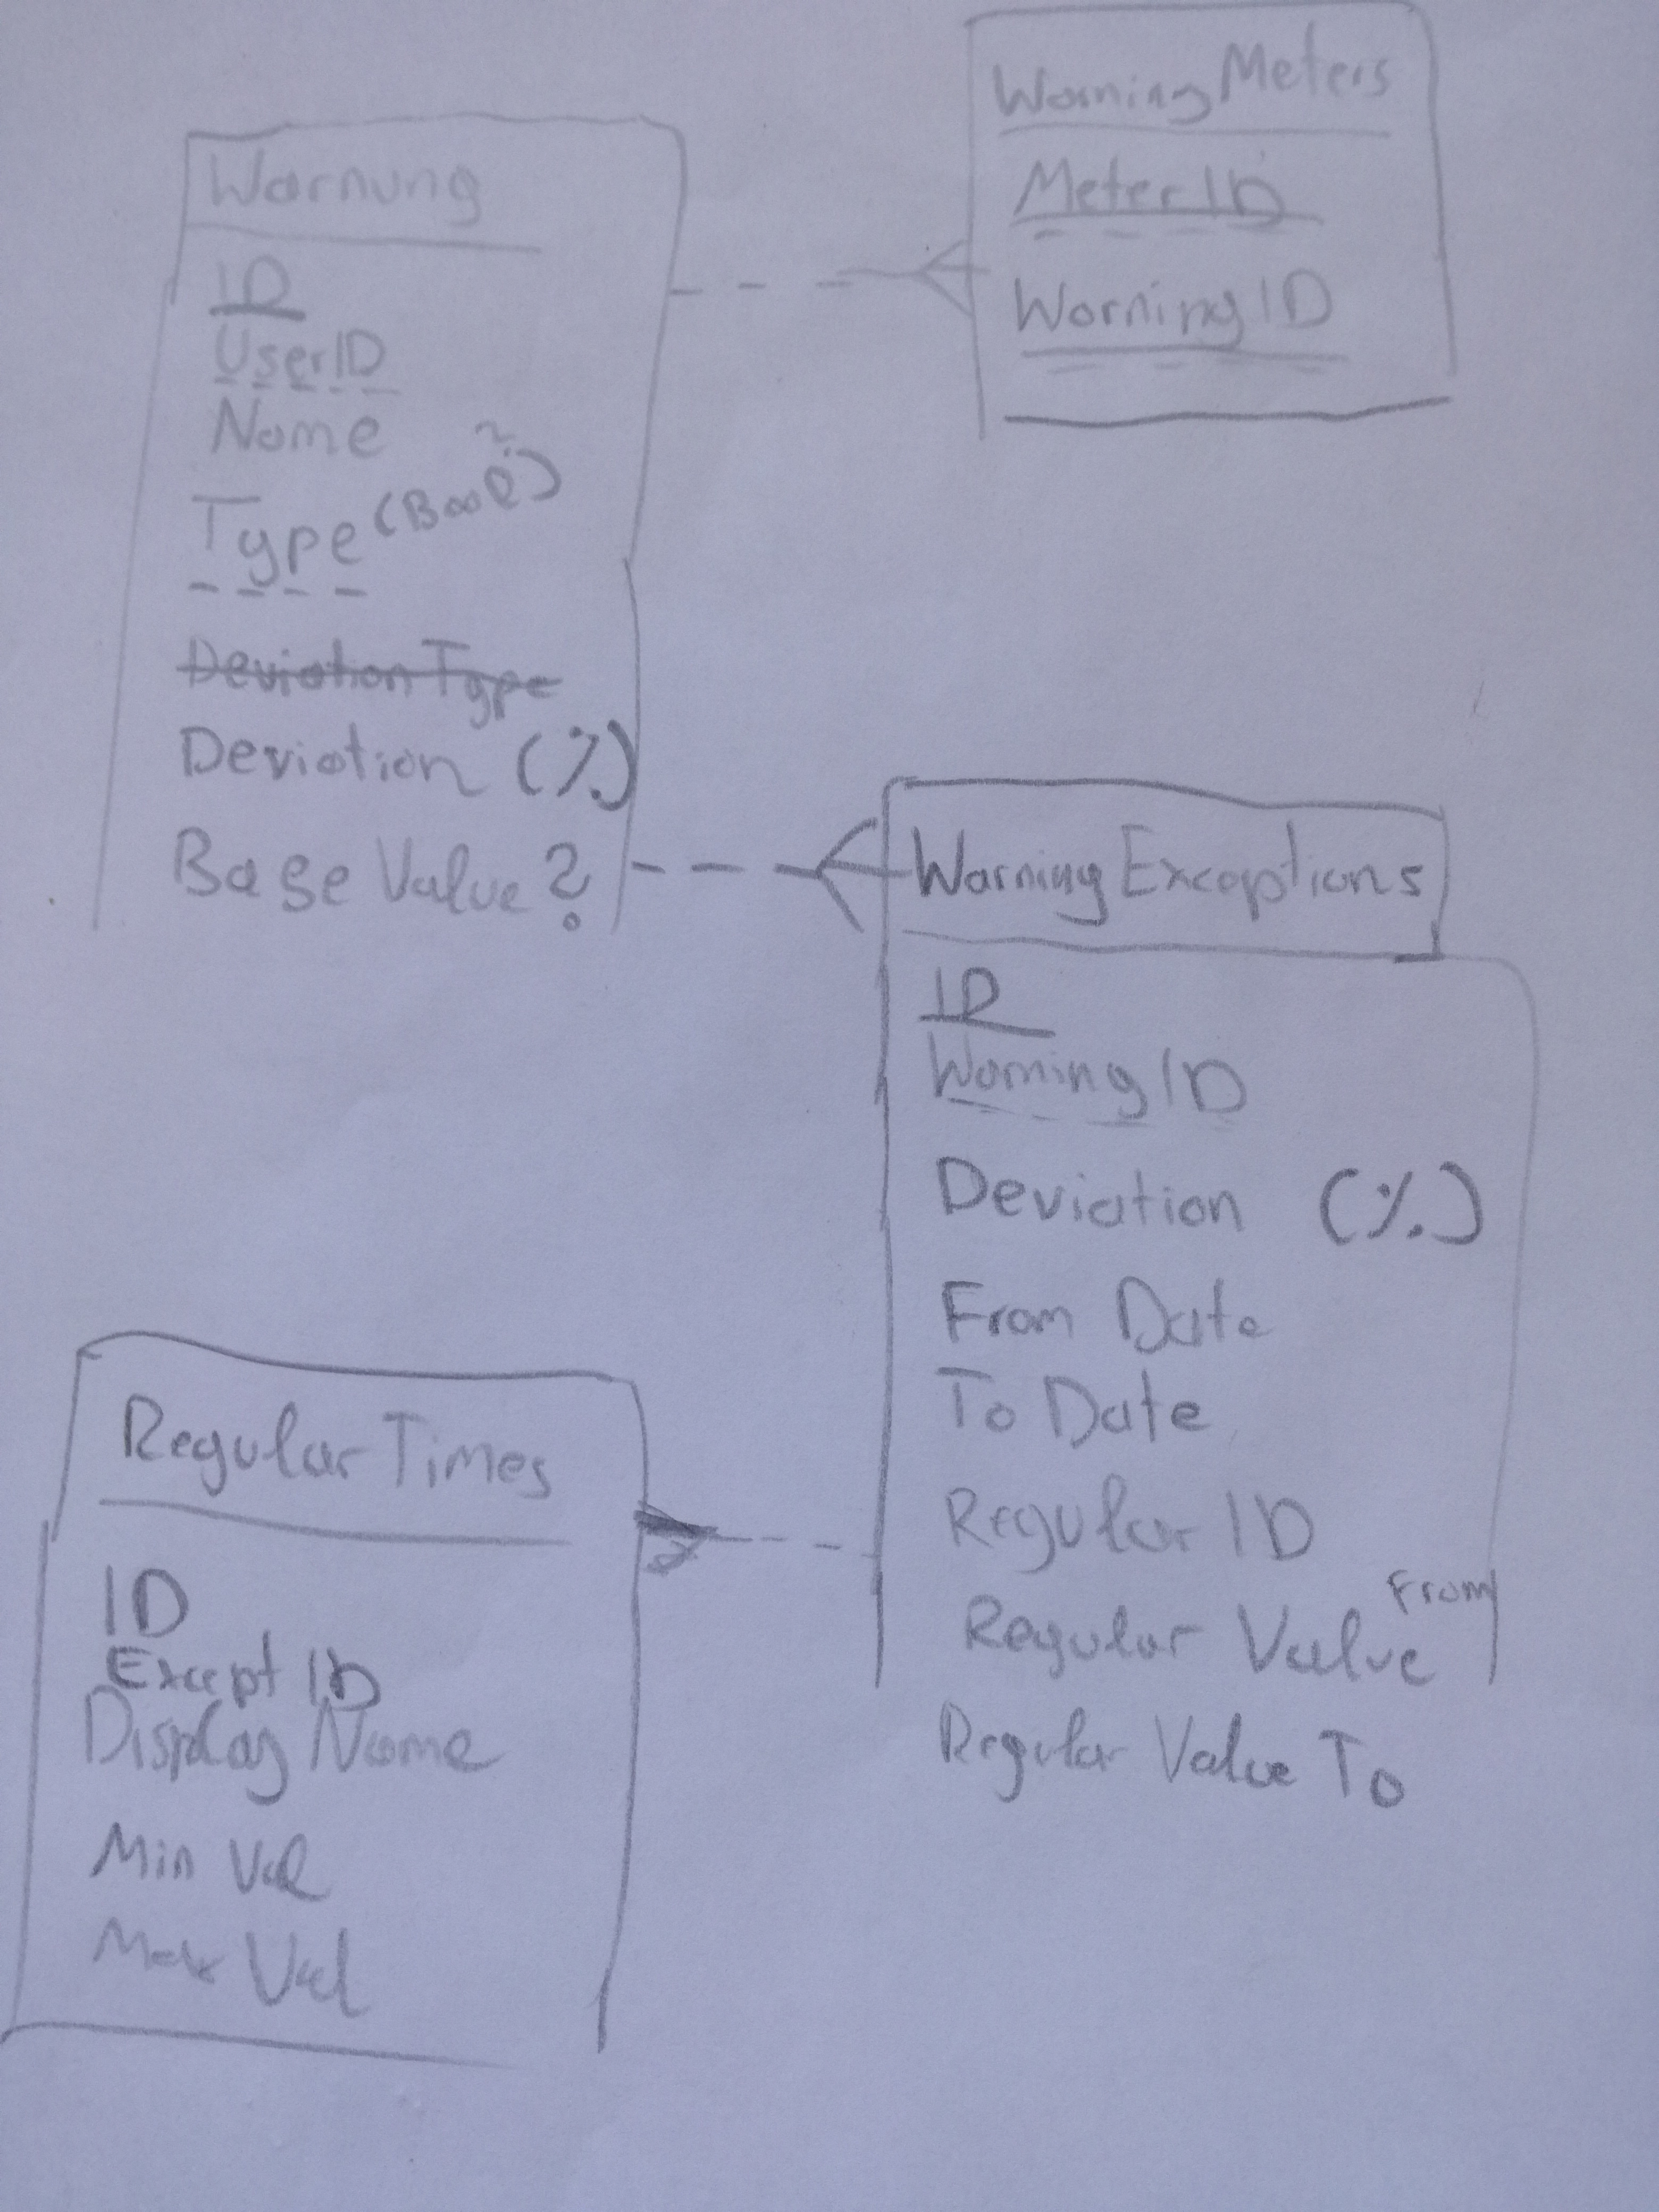 Warnung
ID
UserID
Name
Type (Bool?)
Deviation Type
Deviation (%)
Base Value?
WarningMeters
MeterID
WarningID
WarningExceptions
ID
WarningID
Deviation (%)
From Date
To Date
Regular ID
Regular Value From
Regular Value To
Regular Times
ID
Except ID
Display Name
Min Val
Max Val